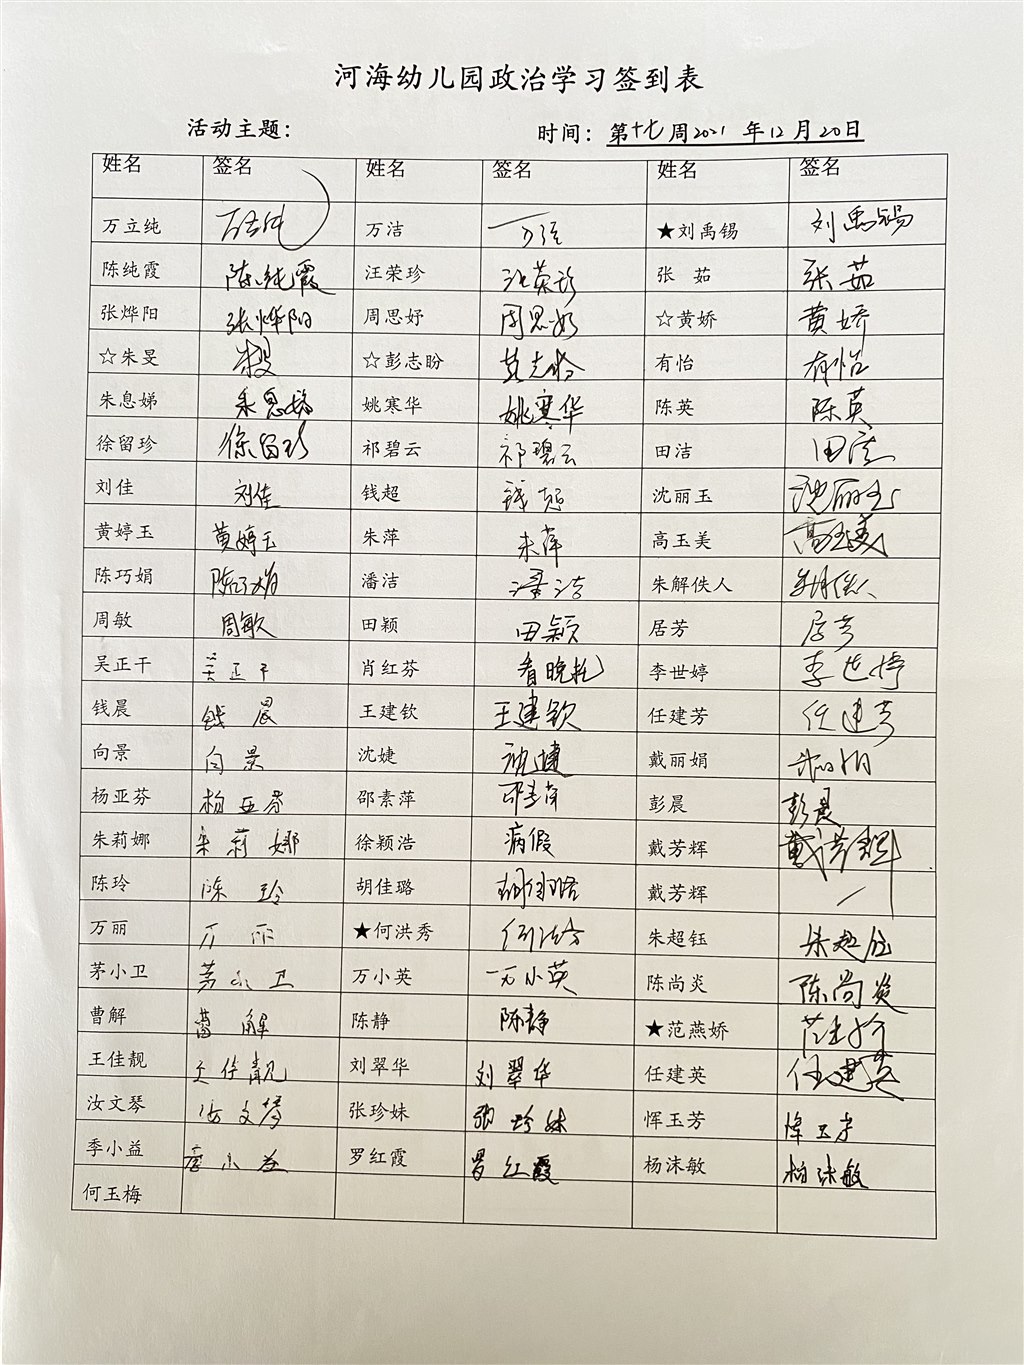 河海幼儿园政治学习签到表
活动主题： 时间：第十七周2021 年12月20日
姓名 签名 姓名 签名 姓名 签名
万立纯 万立纯 万洁 万洁 ★刘禹锡 刘禹锡
陈纯霞 陈纯霞 汪荣珍 汪荣珍 张 茹 张茹
张烨阳 张烨阳 周思妤 周思妤 ☆黄娇 黄娇
☆朱旻 朱旻 ☆彭志盼 有怡 有怡
朱息娣 朱息娣 姚寒华 姚寒华 陈英 陈英
徐留珍 徐留珍 祁碧云 祁碧云 田洁 田洁
刘佳 刘佳 钱超 钱超 沈丽玉 沈丽玉
黄婷玉 黄婷玉 朱萍 朱萍 高玉美 高玉美
陈巧娟 陈巧娟 潘洁 潘洁 朱解佚人
周敏 周敏 田颖 田颖 居芳 居芳
吴正干 吴正干 肖红芬 看晚托 李世婷 李世婷
钱晨 钱晨 王建钦 王建钦 任建芳 任建芳
向景 向景 沈婕 沈婕 戴丽娟
杨亚芬 杨亚芬 邵素萍 彭晨 彭晨
朱莉娜 朱莉娜 徐颖浩 病假 戴芳辉 戴芳辉
陈玲 陈玲 胡佳璐 胡佳璐 戴芳辉
万丽 万丽 ★何洪秀 朱超钰 朱超钰
茅小卫 茅小卫 万小英 万小英 陈尚炎 陈尚炎
曹解 曹解 陈静 陈静 ★范燕娇
王佳靓 王佳靓 刘翠华 刘翠华 任建英 任建英
汝文琴 汝文琴 张珍妹 张珍妹 恽玉芳 恽玉芳
季小益 罗红霞 罗红霞 杨沫敏 杨沫敏
何玉梅